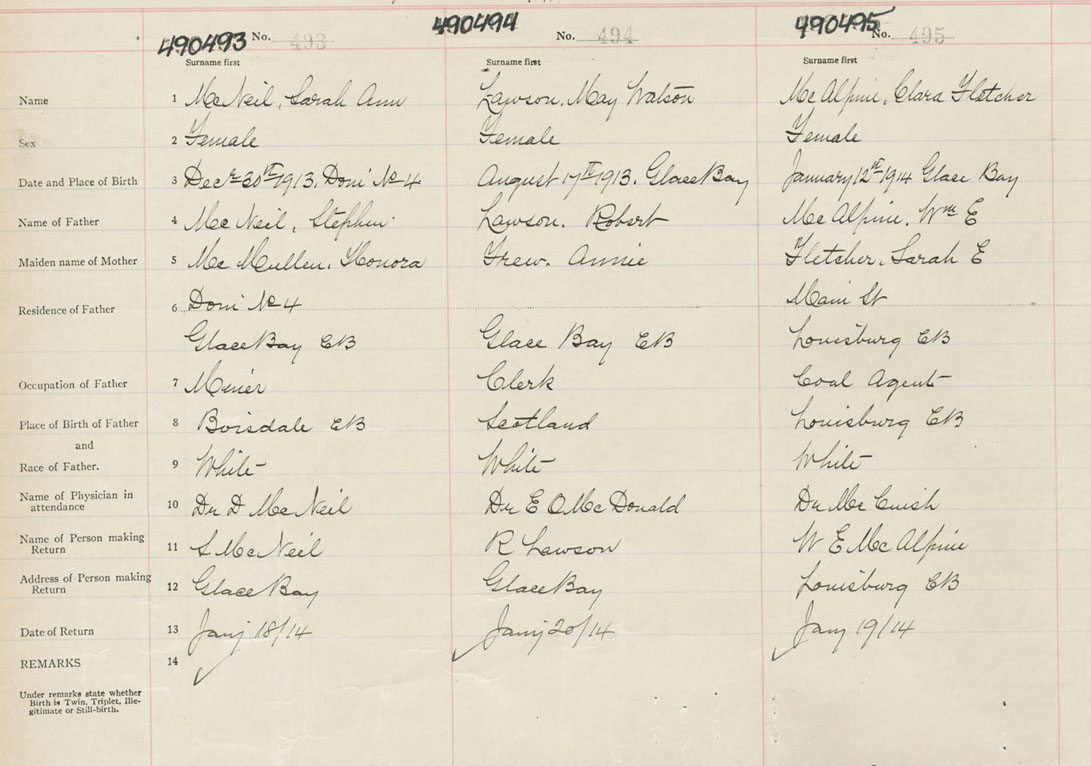 490493 No. 493 490494 No. 494 490495 No. 495
Surname first Surname first Surname first
Name 1 McNeil, Sarah Ann Lawson, May Watson McAlpine, Clara Fletcher
Sex 2 Female Female Female
Date and Place of Birth 3 Decr 30th 1913. Domi No 4 August 17th 1913. Glace Bay January 12th 1914 Glace Bay
Name of Father 4 McNeil, Stephen Lawson. Robert McAlpine. Wm E
Maiden name of Mother 5 McMullen, Honora Frew. Annie Fletcher, Sarah E
Residence of Father 6 Domi No 4 Main St
Glace Bay CB Glace Bay CB Louisburg CB
Occupation of Father 7 Miner Clerk Coal Agent
Place of Birth of Father 8 Boisdale CB Scotland Louisburg CB
and
Race of Father. 9 White White White
Name of Physician in attendance 10 Dr D McNeil Dr E O McDonald Dr McCuish
Name of Person making Return 11 S McNeil R Lawson W E McAlpine
Address of Person making Return 12 Glace Bay Glace Bay Louisburg CB
Date of Return 13 Jany 18/14 Jany 20/14 Jany 19/14
REMARKS 14
Under remarks state whether
Birth is Twin, Triplet, Ille-
gitimate or Still-birth.